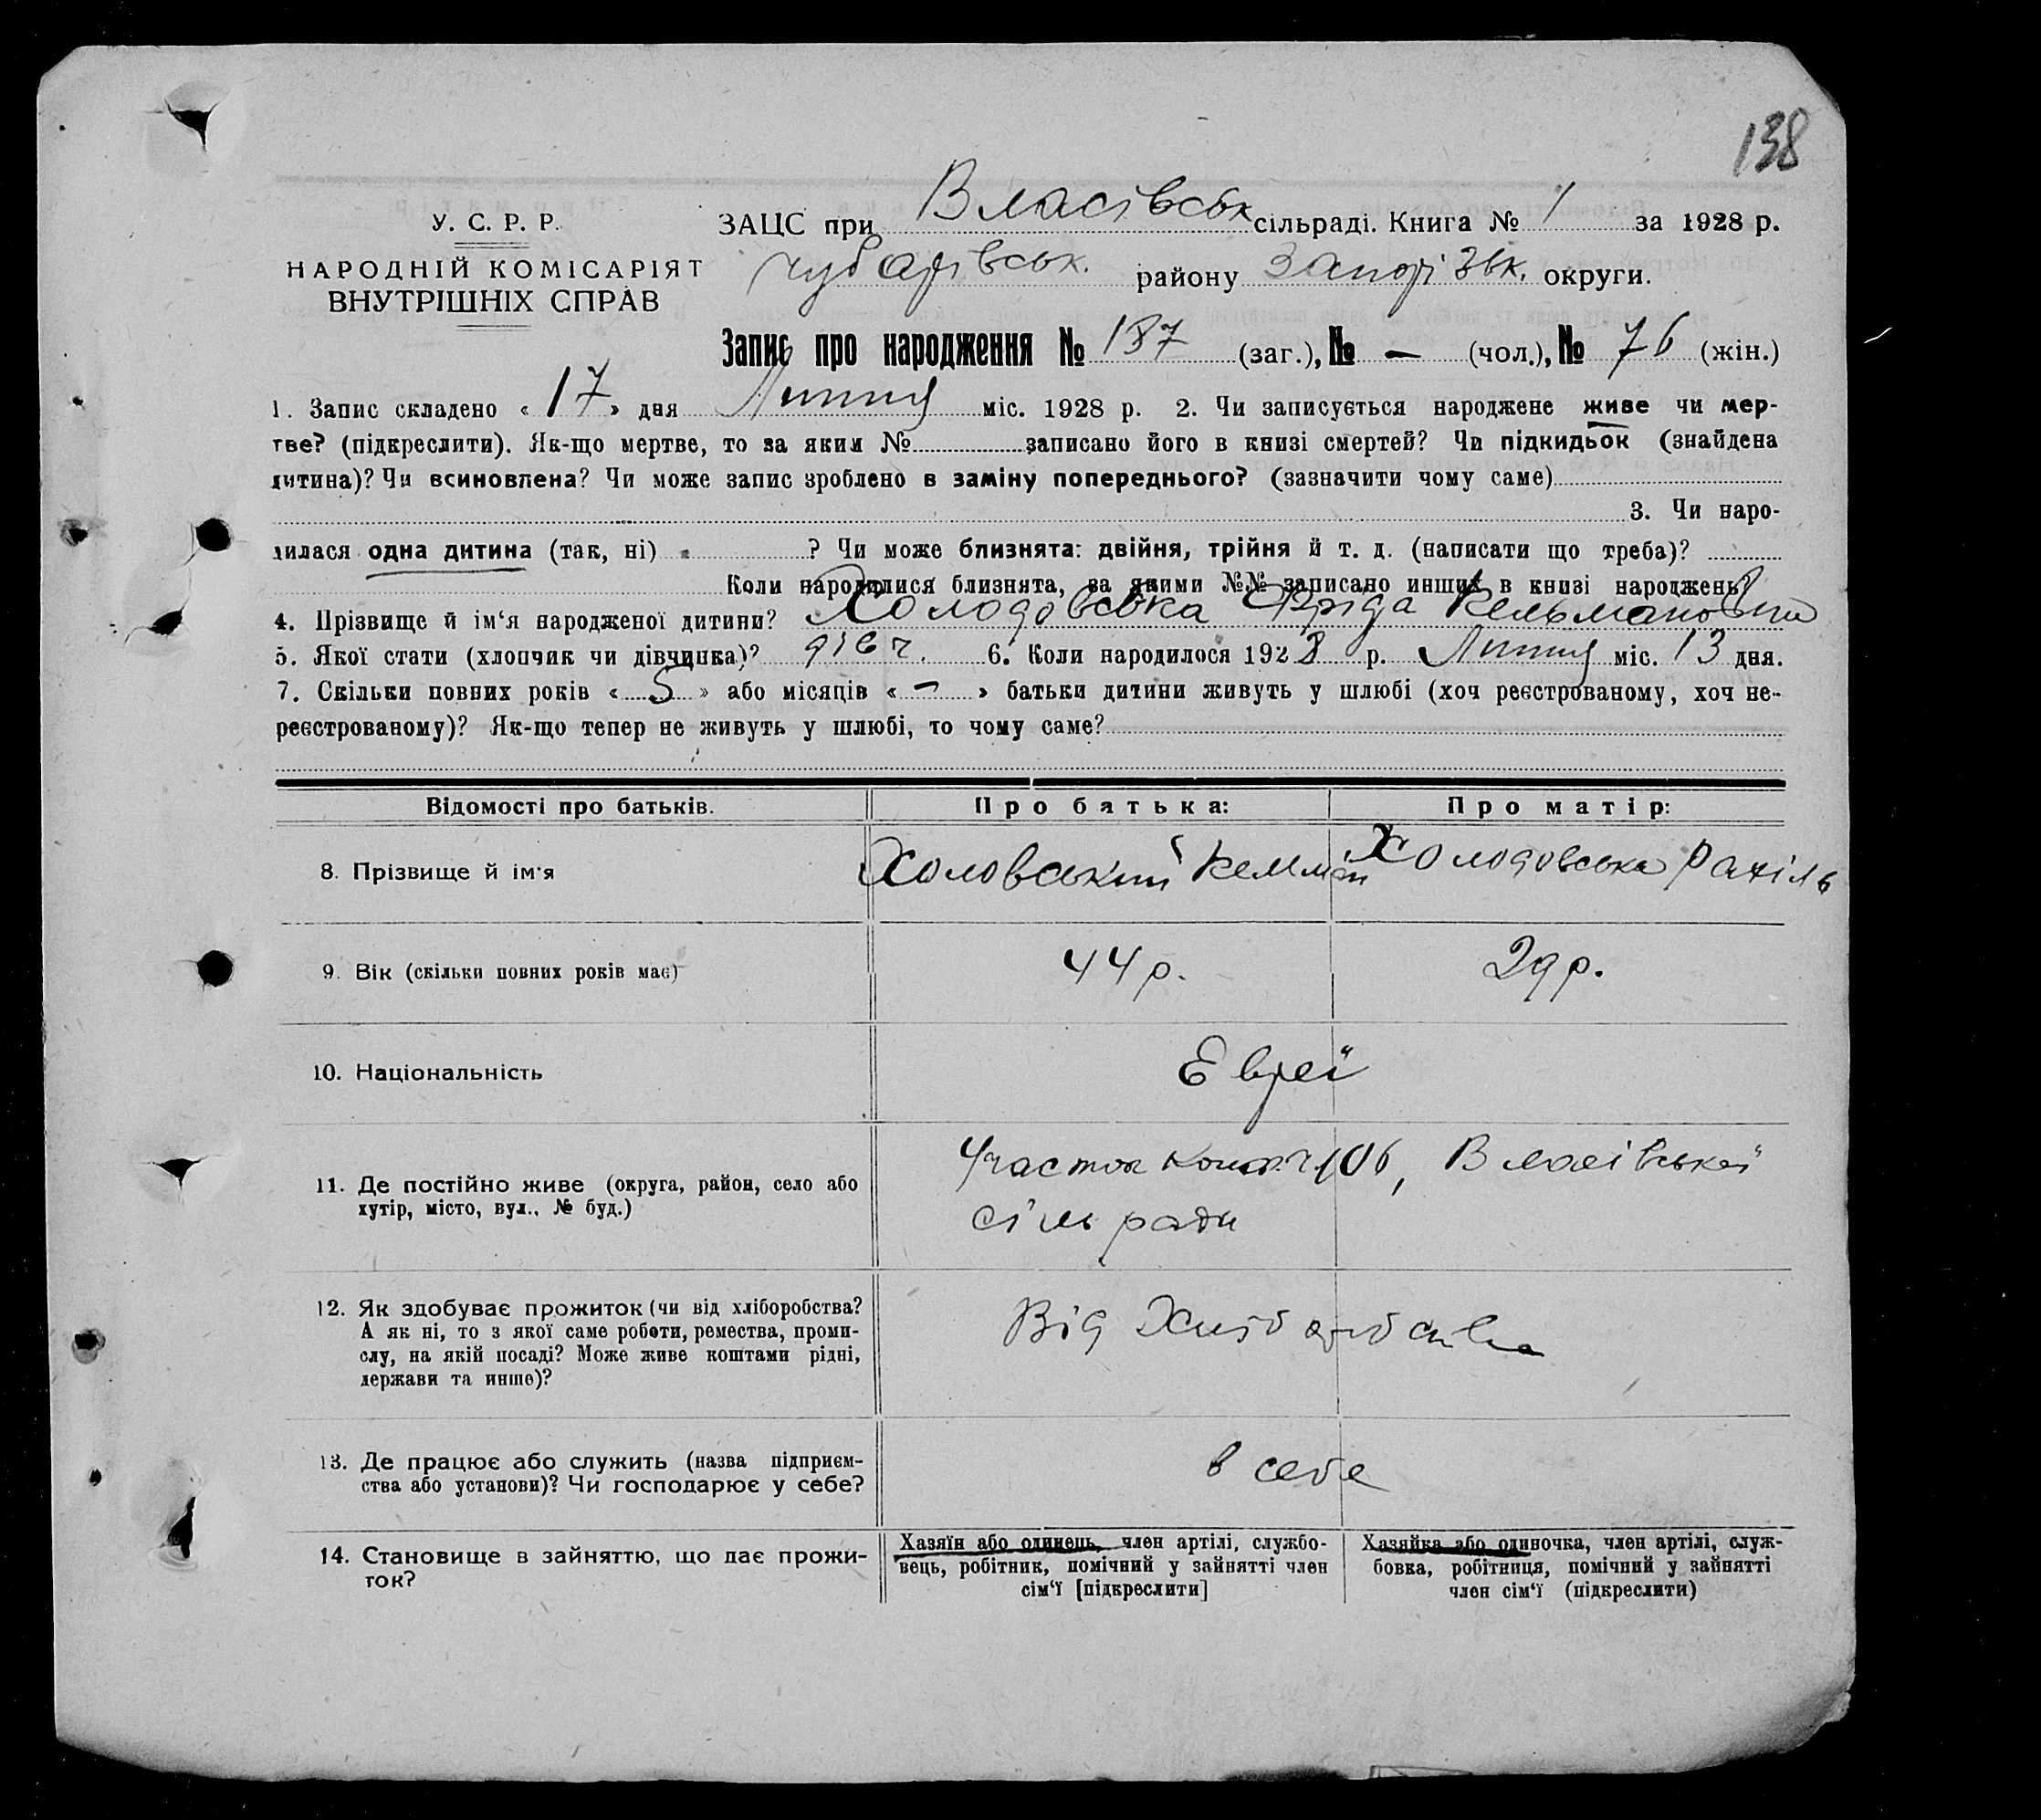 138
У. С. Р. Р.
НАРОДНІЙ КОМІСАРІЯТ
ВНУТРІШНІХ СПРАВ
ЗАЦС при Власівськ сільраді. Книга № 1 за 1928 р.
Чубарівськ. району Запорізьк. округи.
Запис про народження № 137 (заг.), № — (чол.), № 76 (жін.)
1. Запис складено « 17 » дня Липня міс. 1928 р. 2. Чи записується народжене живе чи мер-
тве? (підкреслити). Як-що мертве, то за яким № записано його в книзі смертей? Чи підкидьок (знайдена
дитина)? Чи всиновлена? Чи може запис зроблено в заміну попереднього? (зазначити чому саме)
3. Чи наро-
дилася одна дитина (так, ні) ? Чи може близнята: двійня, трійня й т. д. (написати що треба)?
Коли народилися близнята, за якими №№ записано инших в книзі народжень?
4. Прізвище й ім‘я народженої дитини? Холодовська Фріда Кельмановна
5. Якої стати (хлопчик чи дівчинка)? дівч. 6. Коли народилося 1928 р. Липня міс. 13 дня.
7. Скільки повних років « 5 » або місяців « — » батьки дитини живуть у шлюбі (хоч реєстрованому, хоч не-
реєстрованому)? Як-що тепер не живуть у шлюбі, то чому саме?
Відомості про батьків. Про батька: Про матір:
8. Прізвище й ім‘я Холовський Келман Холодовська Рахіль
9. Вік (скільки повних років має) 44 р. 29 р.
10. Національність Евреї
11. Де постійно живе (округа, район, село або
хутір, місто, вул., № буд.)
Участок 106, Власівської
сільради
12. Як здобуває прожиток (чи від хліборобства?
А як ні, то з якої саме роботи, ремества, проми-
слу, на якій посаді? Може живе коштами рідні,
держави та инше)?
Від Хліборобства
13. Де працює або служить (назва підприєм-
ства або установи)? Чи господарює у себе?
в себе
14. Становище в зайняттю, що дає прожи-
ток?
Хазяїн або одинець, член артілі, службо-
вець, робітник, помічний у зайнятті член
сім‘ї [підкреслити]
Хазяйка або одиночка, член артілі, служ-
бовка, робітниця, помічний у зайнятті
член сім‘ї (підкреслити)